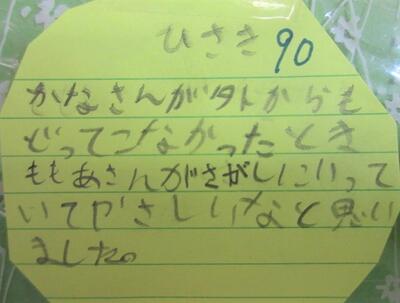 ひさき 90
かなさんが外からも
どってこなかったとき
ももあさんがさがしにいって
いてやさしいなと思い
ました。